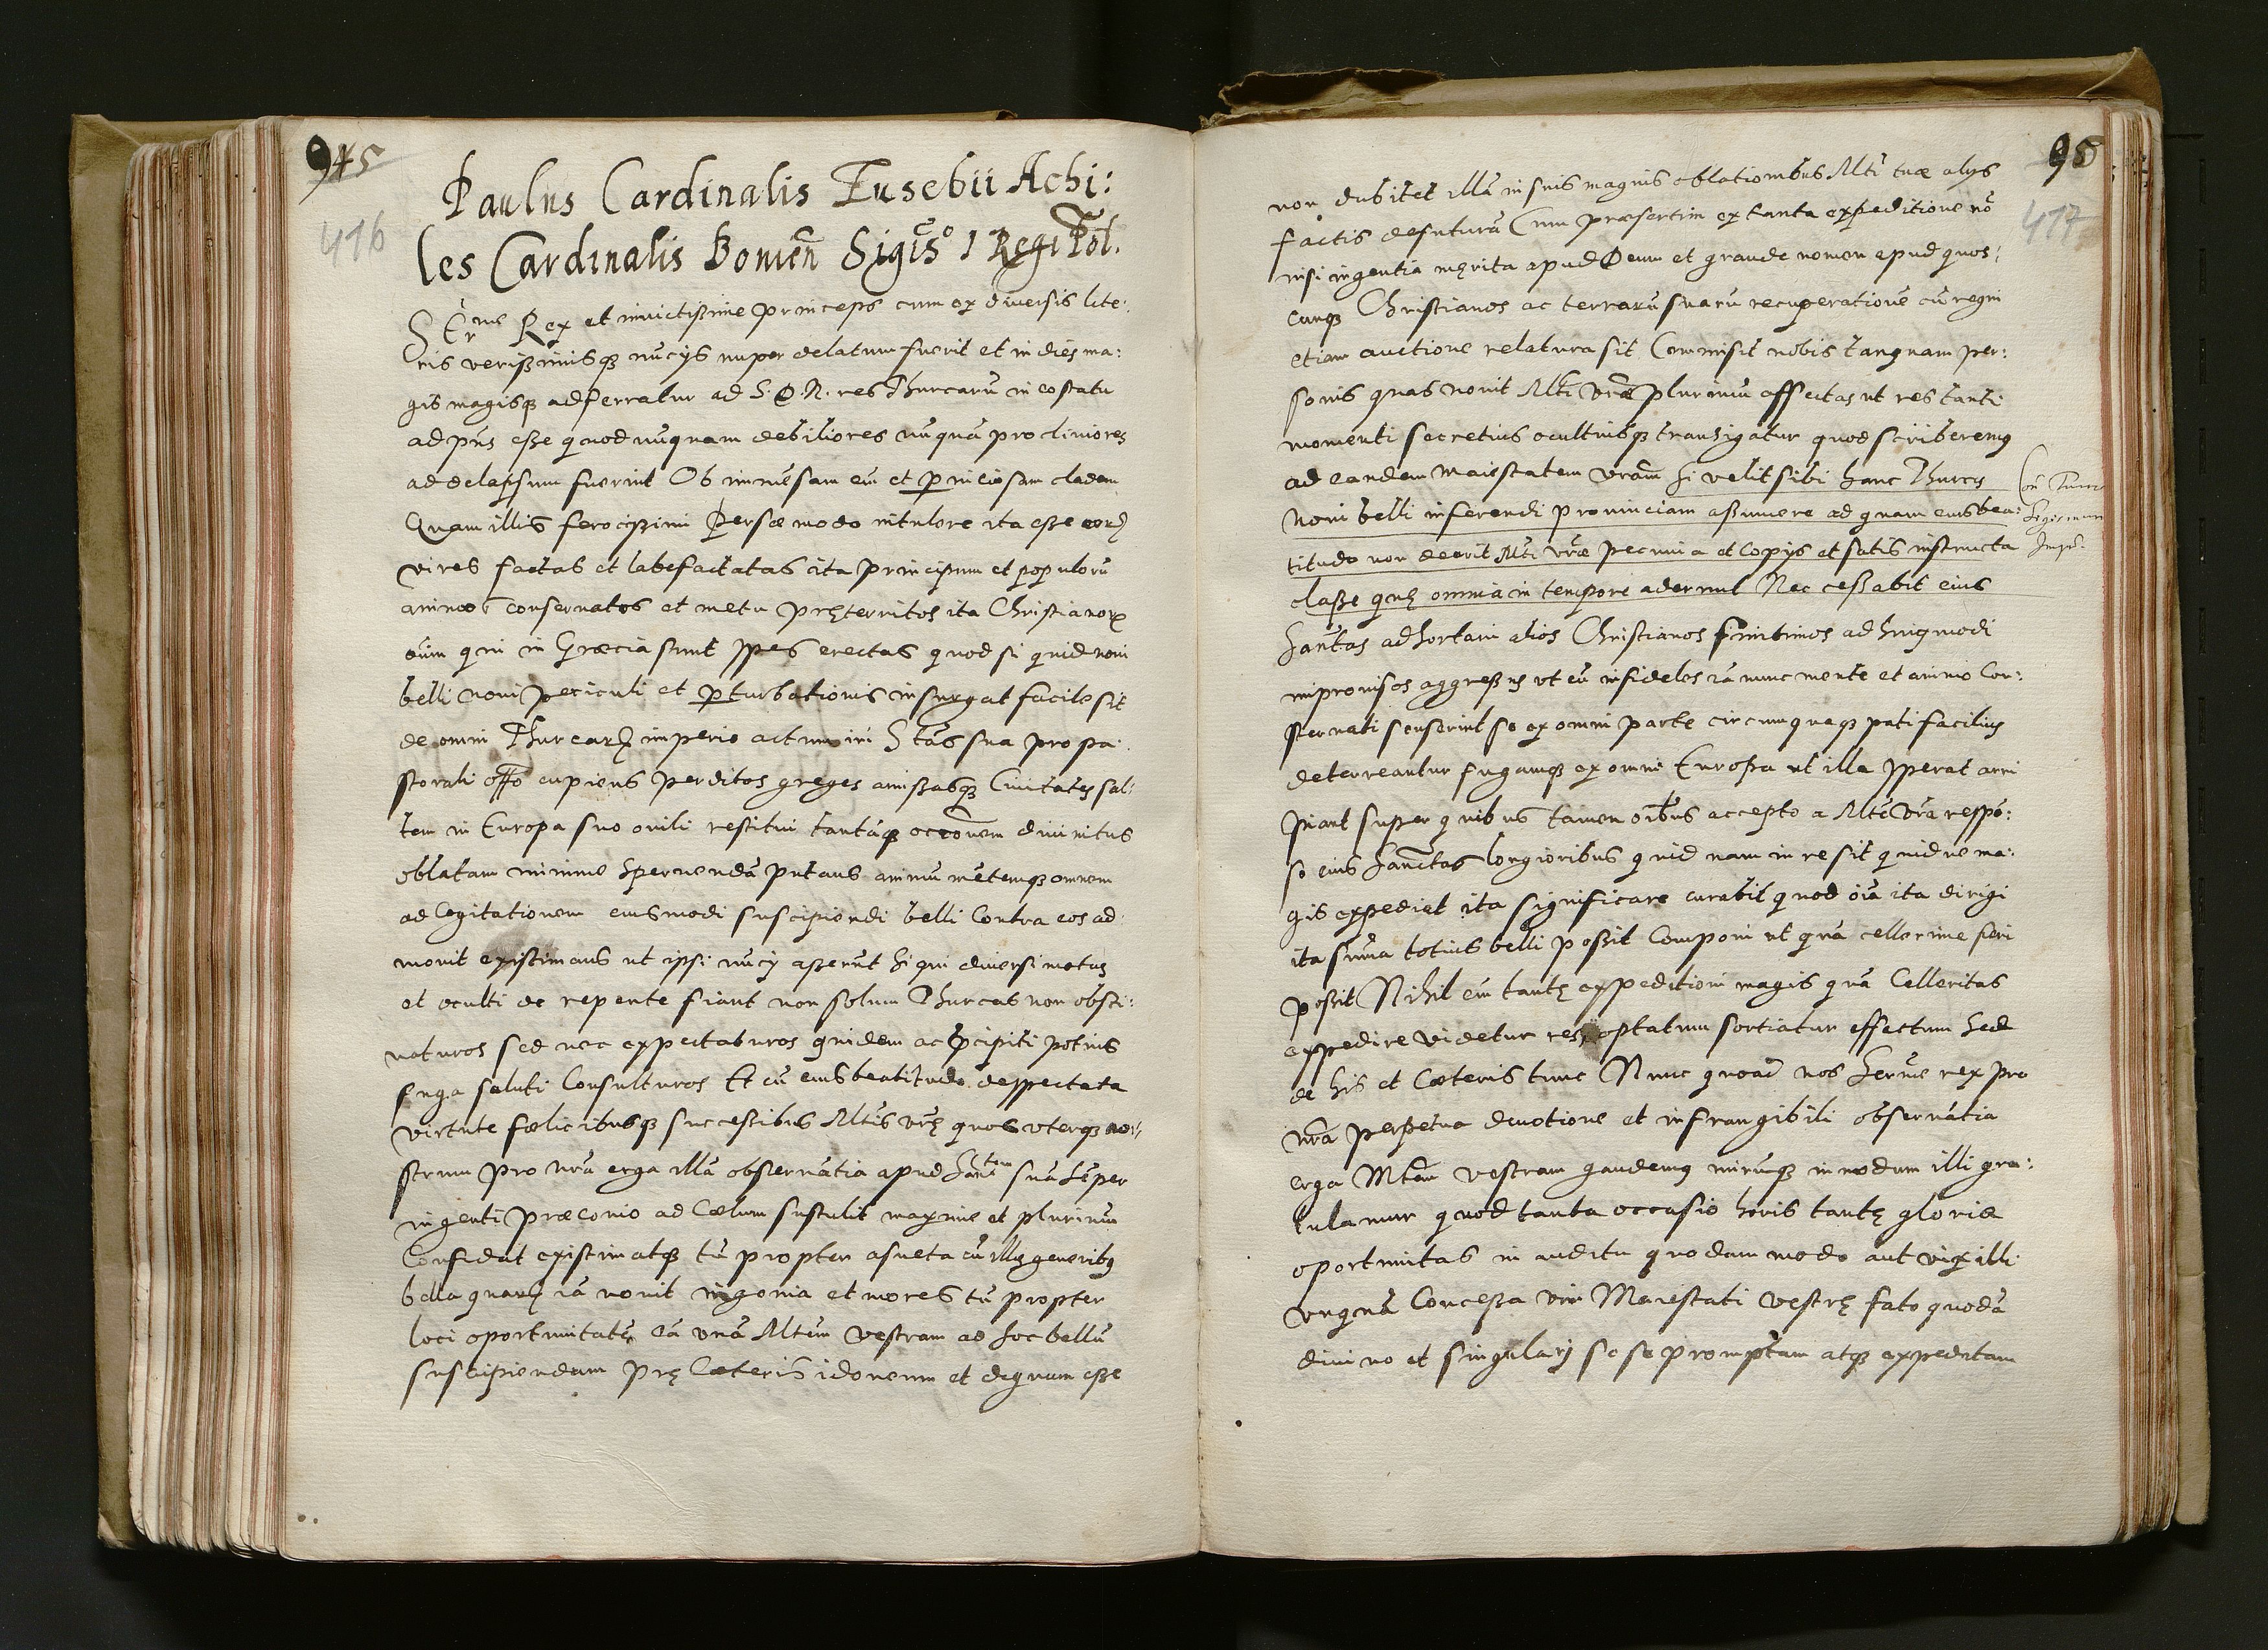 945
416
Paulus Cardinalis Eusebii Achi:
les Cardinalis Bonien Sigis° 1 Regi Pol.
SErme Rex et invictißime princeps cum ex diversis lite:
ris verißimisque nucÿs nuper delatum fuerit et in dies ma:
gis magisque adferratur ad S. D. N. res Thurcarũ in eo statu
ad pñs eße quod nuquam debiliores nuquã procliviores
ad delapsum fuerint Ob immẽsam eĩ et perniciosam cladem
Quam illis ferocißimi Persæ modo intulere ita eße eorum
vires factas et labefactatas ita principum et populorũ
animos consernatos et metu pręterritos ita Christianorum
eũm qui in Græcia sunt spes erectas quod si quid novi
belli novi periculi et perturbationis insurgat facile sit
de omni Thurcarum imperio actum iri Stas sua pro pa:
storali offo cupiens perditos greges amißasque Civitates sal:
tem in Europa suo ovili restitui tantãque occoñem divinitus
oblatam minime spernendã putans animũ mẽtemque omnem
ad Cogitationem eiusmodi suscipiendi belli Contra eos ad:
movit existimans ut ipsi nucÿ aßerunt si qui diversi motus
et oculti de repente fiant non solum Thurcas non obsti:
naturos sed nec expectaturos quidem ac pcipiti potius
fuga saluti Consulturos Et cũ eius beatitudo desppectata
virtute fœlicibusque succeßibus Mtis vrę quos uterque no:
strum pro nrã erga illã observãtia apud Sanctem suã sẽper
ingenti præconio ad Cælum sustulit maxime et plurimũ
Confidat existimatque tũ propter asueta cũ illis generibus
bella quarum iã novit ingenia et mores tũ propter
loci oportunitatẽ eã unã Mtem vestram ad hoc bellũ
suscipiendum prę Cæteris idoneum et dignam eße
95
417
non dubitet illã in suis magnis oblationibus Mti tuæ alÿs
factis defuturã Cum præsertim ex tanta expeditione nõ
nisi ingentia męrita apud Deum et grande nomen apud quos:
cunque Christianos ac terrarũ suarũ recuperatione cũ regni
etiam auctione relatura sit Commisit nobis tanquam per:
sonis quas novit Mti vrae plurimũ affectas ut res tanti
momenti secretius ocultiusque transigatur quod scriberemus
ad eandem Maiestatem vram si velit sibi hanc Thurcis
novi belli inferendi provinciam aßumere ad quam eius bea:
titudo non deerit Mti vrae pecunia et Copÿs et satis instructa
claße quę omnia in tempore aderunt Nec ceßabit eius
Sanctas adhortari alios Christianos finitimos ad huiusmodi
improvisos aggreßus ut cũ infideles iã nunc mente et animo Con:
sternati senserint se ex omni parte circumquaque pati facilius
deterreantur fugamque ex omni Europa ut illa sperat arri
piant super quibus tamen oibus accepto a Mte vra respõ:
so eius Sanctas longioribus quid nam in re sit quidve ma:
gis expediat ita significare curabit quod oia ita dirigi
ita sũma totius belli poßit Componi ut quã cellerime fieri
poßit Nihil eĩ tantę expeditioni magis quã Celleritas
expedire videtur res optatum sortiatur effectum sed
de his et Cæteris tunc Nunc quoad nos Serme rex pro
nra perpetua devotione et infrangibili observãtia
erga Mtem vestram gaudemus mirũque in modum illi gra:
tulamur quod tanta occasio heris tantę gloriæ
oportunitas in auditu quodam modo aut vix illi
unquã Conceßa uni Maiestati vestrę fato quodã
divino et singulari se se promptam atque expeditam
Con Turc
Sigismun